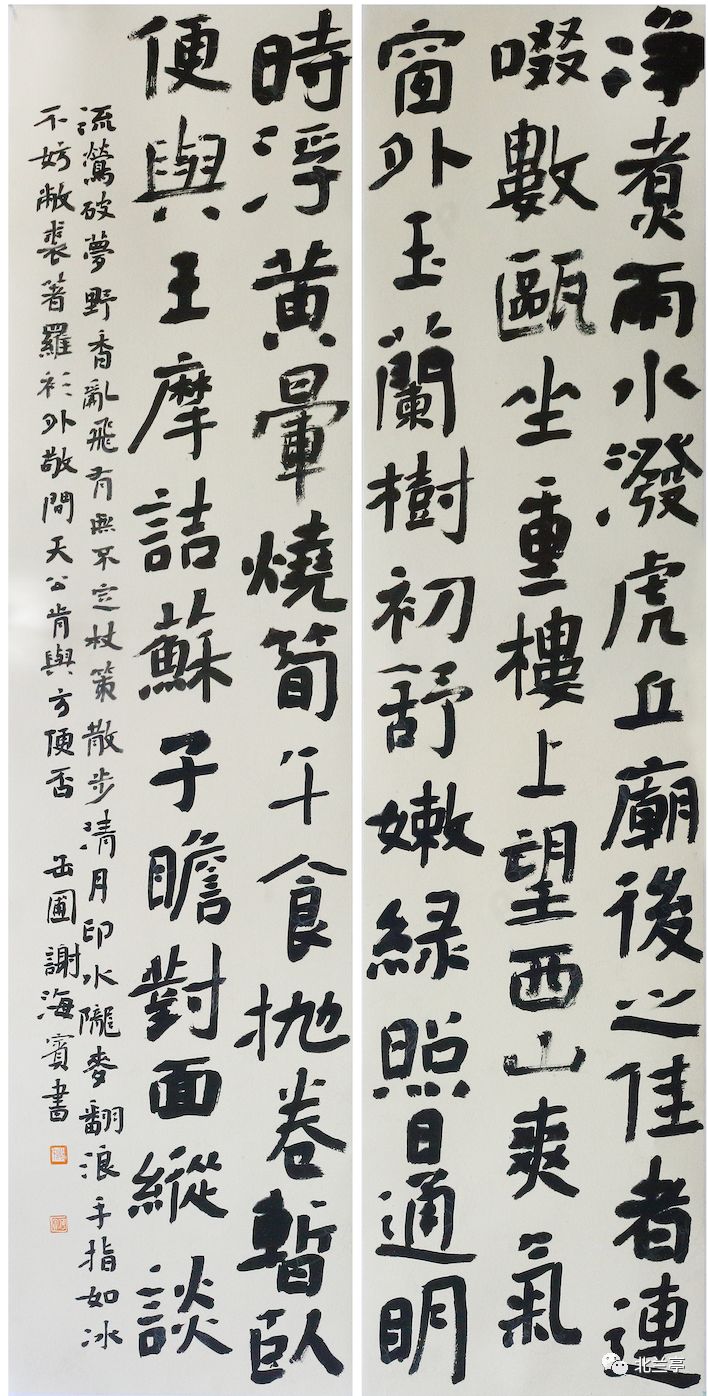 淨煮雨水潑虎丘廟後之佳者連
啜數甌坐重樓上望西山爽氣
窗外玉蘭樹初舒嫩綠照日通明
時浮黃暈燒筍午食拋卷暫臥
便與王摩詰蘇子瞻對面縱談
流鶯破夢野香亂飛有無不定杖策散步清月印水隴麥翻浪手指如冰
不妨敝裘著羅衫外敬問天公肯與方便否 缶圃謝海賓書
北兰亭